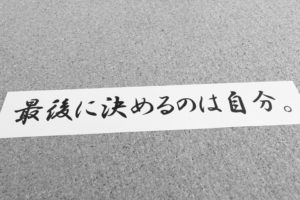 最後に決めるのは自分。